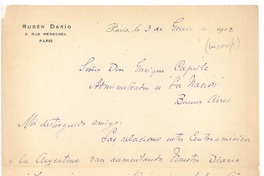 RUBÉN DARÍO
4, RUE HERSCHEL
PARIS
Paris, le 3 de Enero de 1902
Señor Don Enrique
Administrador de "La Nación"
Buenos Aires
Mi distinguido amigo:
Las relaciones entre Centroamérica
y la Argentina van aumentando. Nuestro Diario